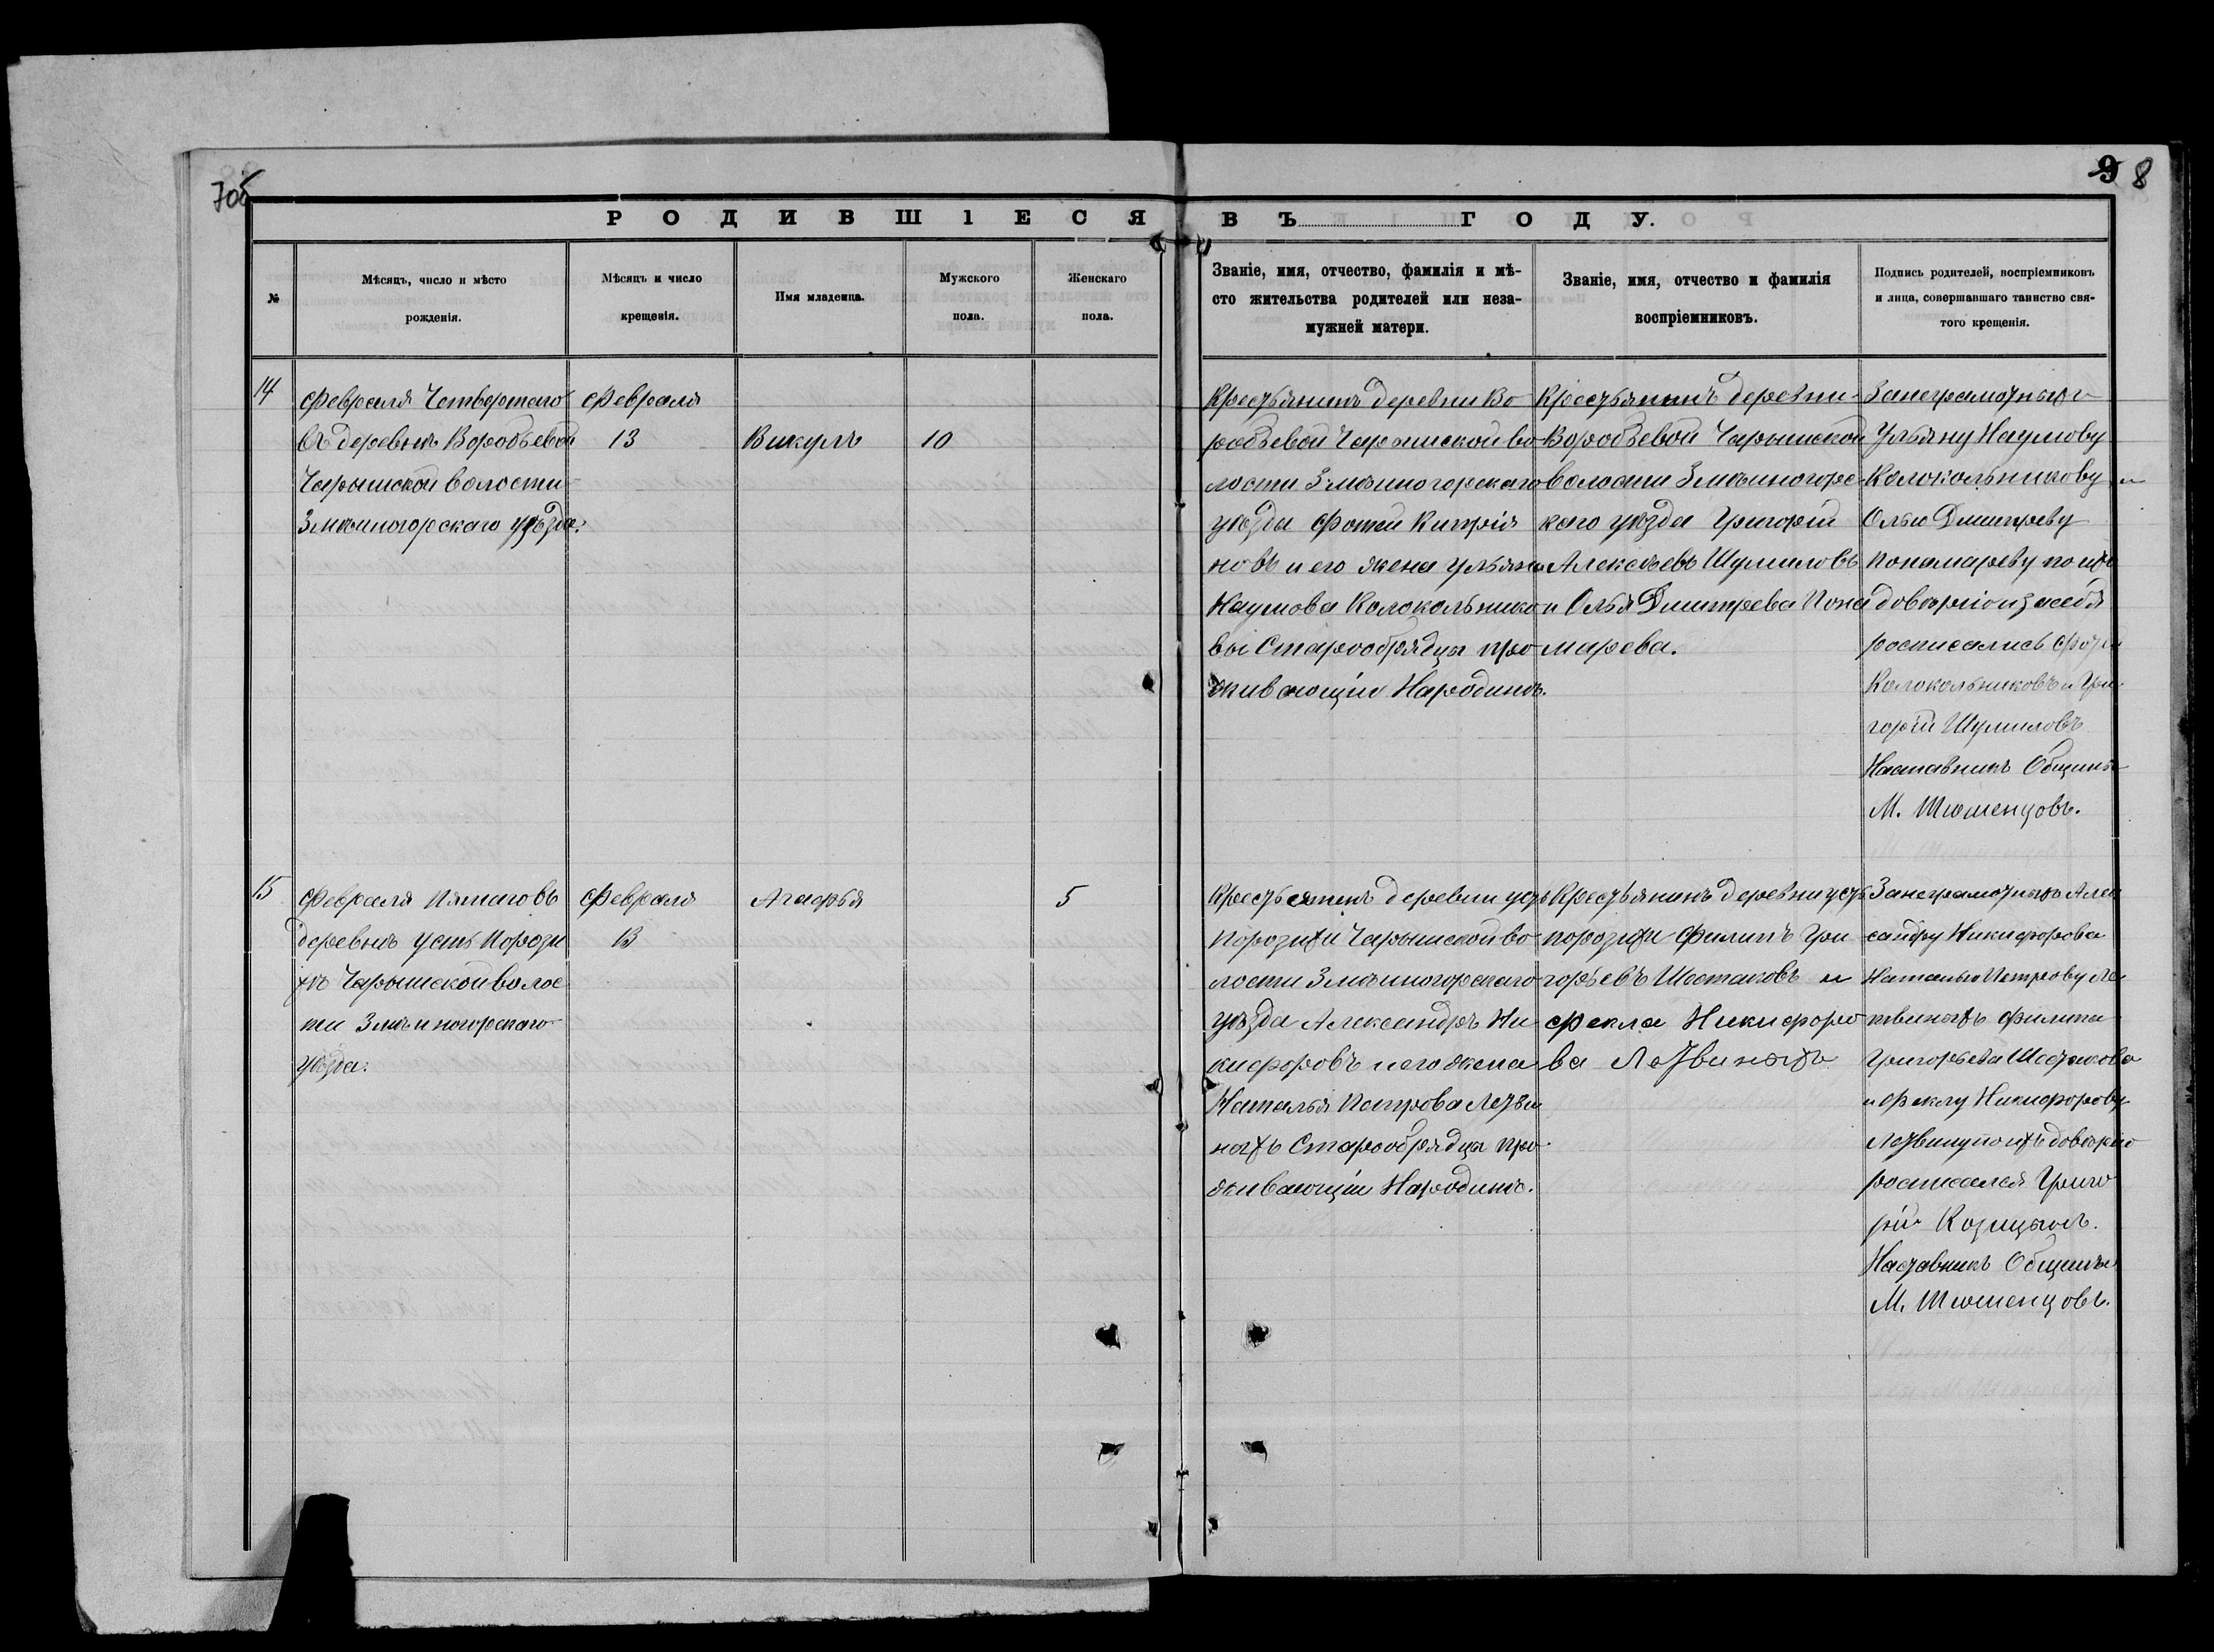 7об
9 8
РОДИВШІЕСЯ ВЪ ГОДУ.
№
Мѣсяцъ, число и мѣсто
рожденія.
Мѣсяцъ и число
крещенія.
Имя младенца.
Мужского
пола.
Женскаго
пола.
Званіе, имя, отчество, фамилія и мѣ-
сто жительства родителей или неза-
мужней матери.
Званіе, имя, отчество и фамилія
воспріемниковъ.
Подпись родителей, воспріемниковъ
и лица, совершавшаго таинство свя-
того крещенія.
14
Февраля Четвертаго
въ деревнѣ Воробьевой
Чарышской волости
Змѣиногорскаго уѣзда.
Февраля
13
Викулъ
10
Крестьянинъ деревни Во
робьевой Чарышской во
лости Змѣиногорскаго
уѣзда Фотей Кипрія
новъ и его жена Ульяна
Наумова Колокольнико
вы Старообрядцы про
живающіи На родинѣ.
Крестьянинъ деревни
Воробьевой Чарышской
волости Змѣиногорс
каго уѣзда Григорій
Алексѣевъ Шумиловъ
и Олья Дмитрева Поно
марева.
За неграмотныхъ
Ульяну Наумову
Колокольникову и
Олью Дмитреву
Понамареву по ихъ
довѣрію и за себя
росписались Фотей
Колокольниковъ и Гри
горій Шумиловъ
Наставникъ Общины
М. Тюменцовъ.
15
Февраля Пятаго въ
деревнѣ Усть Порози
хѣ Чарышской волос
ти Змѣиногорскаго
уѣзда.
Февраля
13
Агафья
5
Крестьянинъ деревни усть
Порозихи Чарышской во
лости Змѣиногорскаго
уѣзда Александръ Ни
кифоровъ и его жена
Наталья Петрова Летви
ныхъ Старообрядцы про
живающіи На родинѣ.
Крестьянинъ деревни усть
порозихи Филипъ Гри
горьевъ Шестаковъ и
Фекла Никифоро
ва Летвиныхъ
За неграмотныхъ Алек
сандру Никифорова
Наталью Петрову Ле
твиныхъ Филипа
Григорьева Шестакова
и Феклу Никифорову
Летвину по ихъ довѣрію
росписался Григо
рій Козицынъ.
Наставникъ Общины
М. Тюменцовъ.